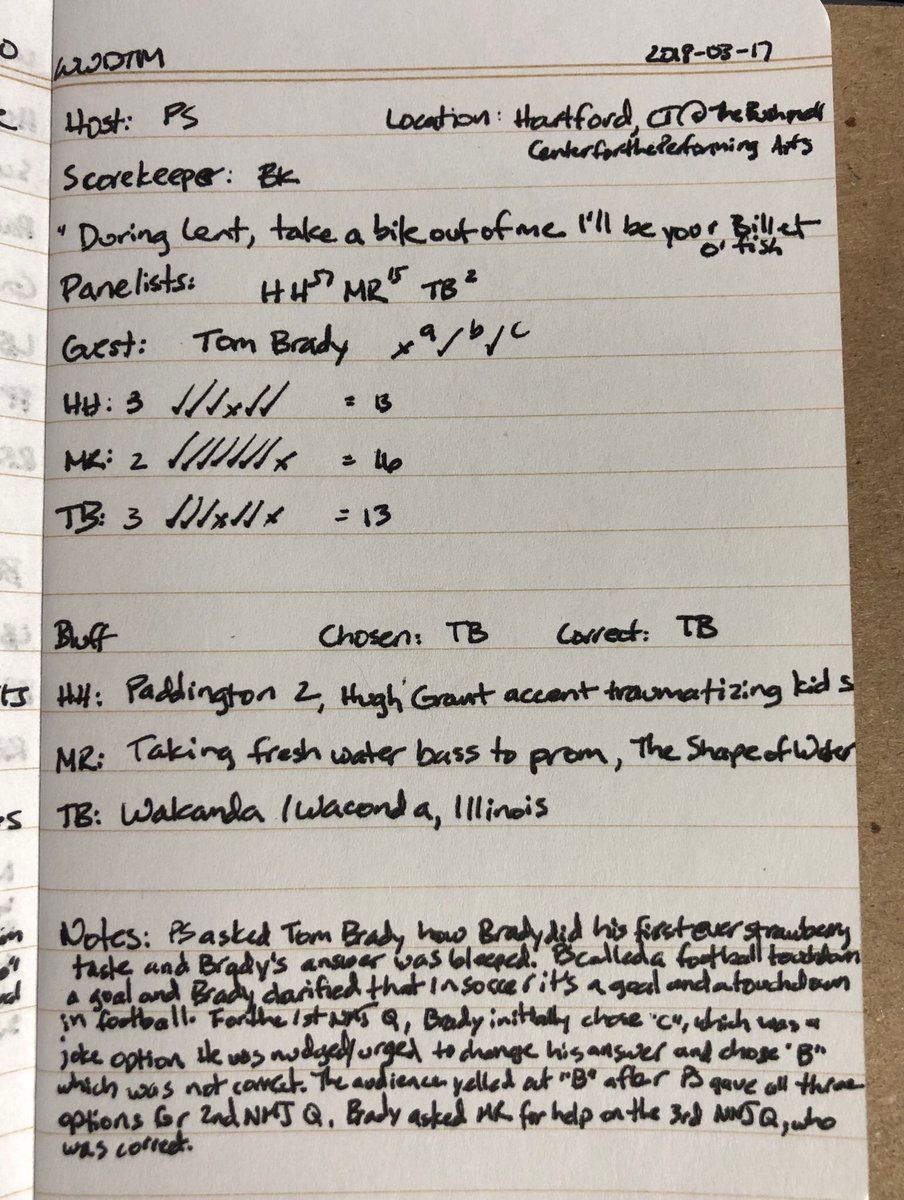 WWDTM 2018-03-17
Host: PS Location: Hartford, CT @ The Bushnell
Center for the Performing Arts
Scorekeeper: BK
"During Lent, take a bite out of me I'll be your Billet
O' fish
Panelists: HH⁵⁷ MR¹⁵ TB²
Guest: Tom Brady ×ᵃ ✓ᵇ ✓ᶜ
HH: 3 ✓✓✓×✓✓ = 13
MR: 2 ✓✓✓✓✓✓✓× = 16
TB: 3 ✓✓✓×✓✓× = 13
Bluff Chosen: TB Correct: TB
HH: Paddington 2, Hugh Grant accent traumatizing kids
MR: Taking fresh water bass to prom, The Shape of Water
TB: Wakanda / Waconda, Illinois
Notes: PS asked Tom Brady how Brady did his first ever strawberry
taste and Brady's answer was bleeped. PS called a football touchdown
a goal and Brady clarified that in soccer it's a goal and a touchdown
in football. For the 1st NMJ Q, Brady initially chose "C", which was a
joke option. He was nudged/urged to change his answer and chose "B"
which was not correct. The audience yelled out "B" after PS gave all three
options for 2nd NMJ Q. Brady asked MR for help on the 3rd NMJ Q, who
was correct.